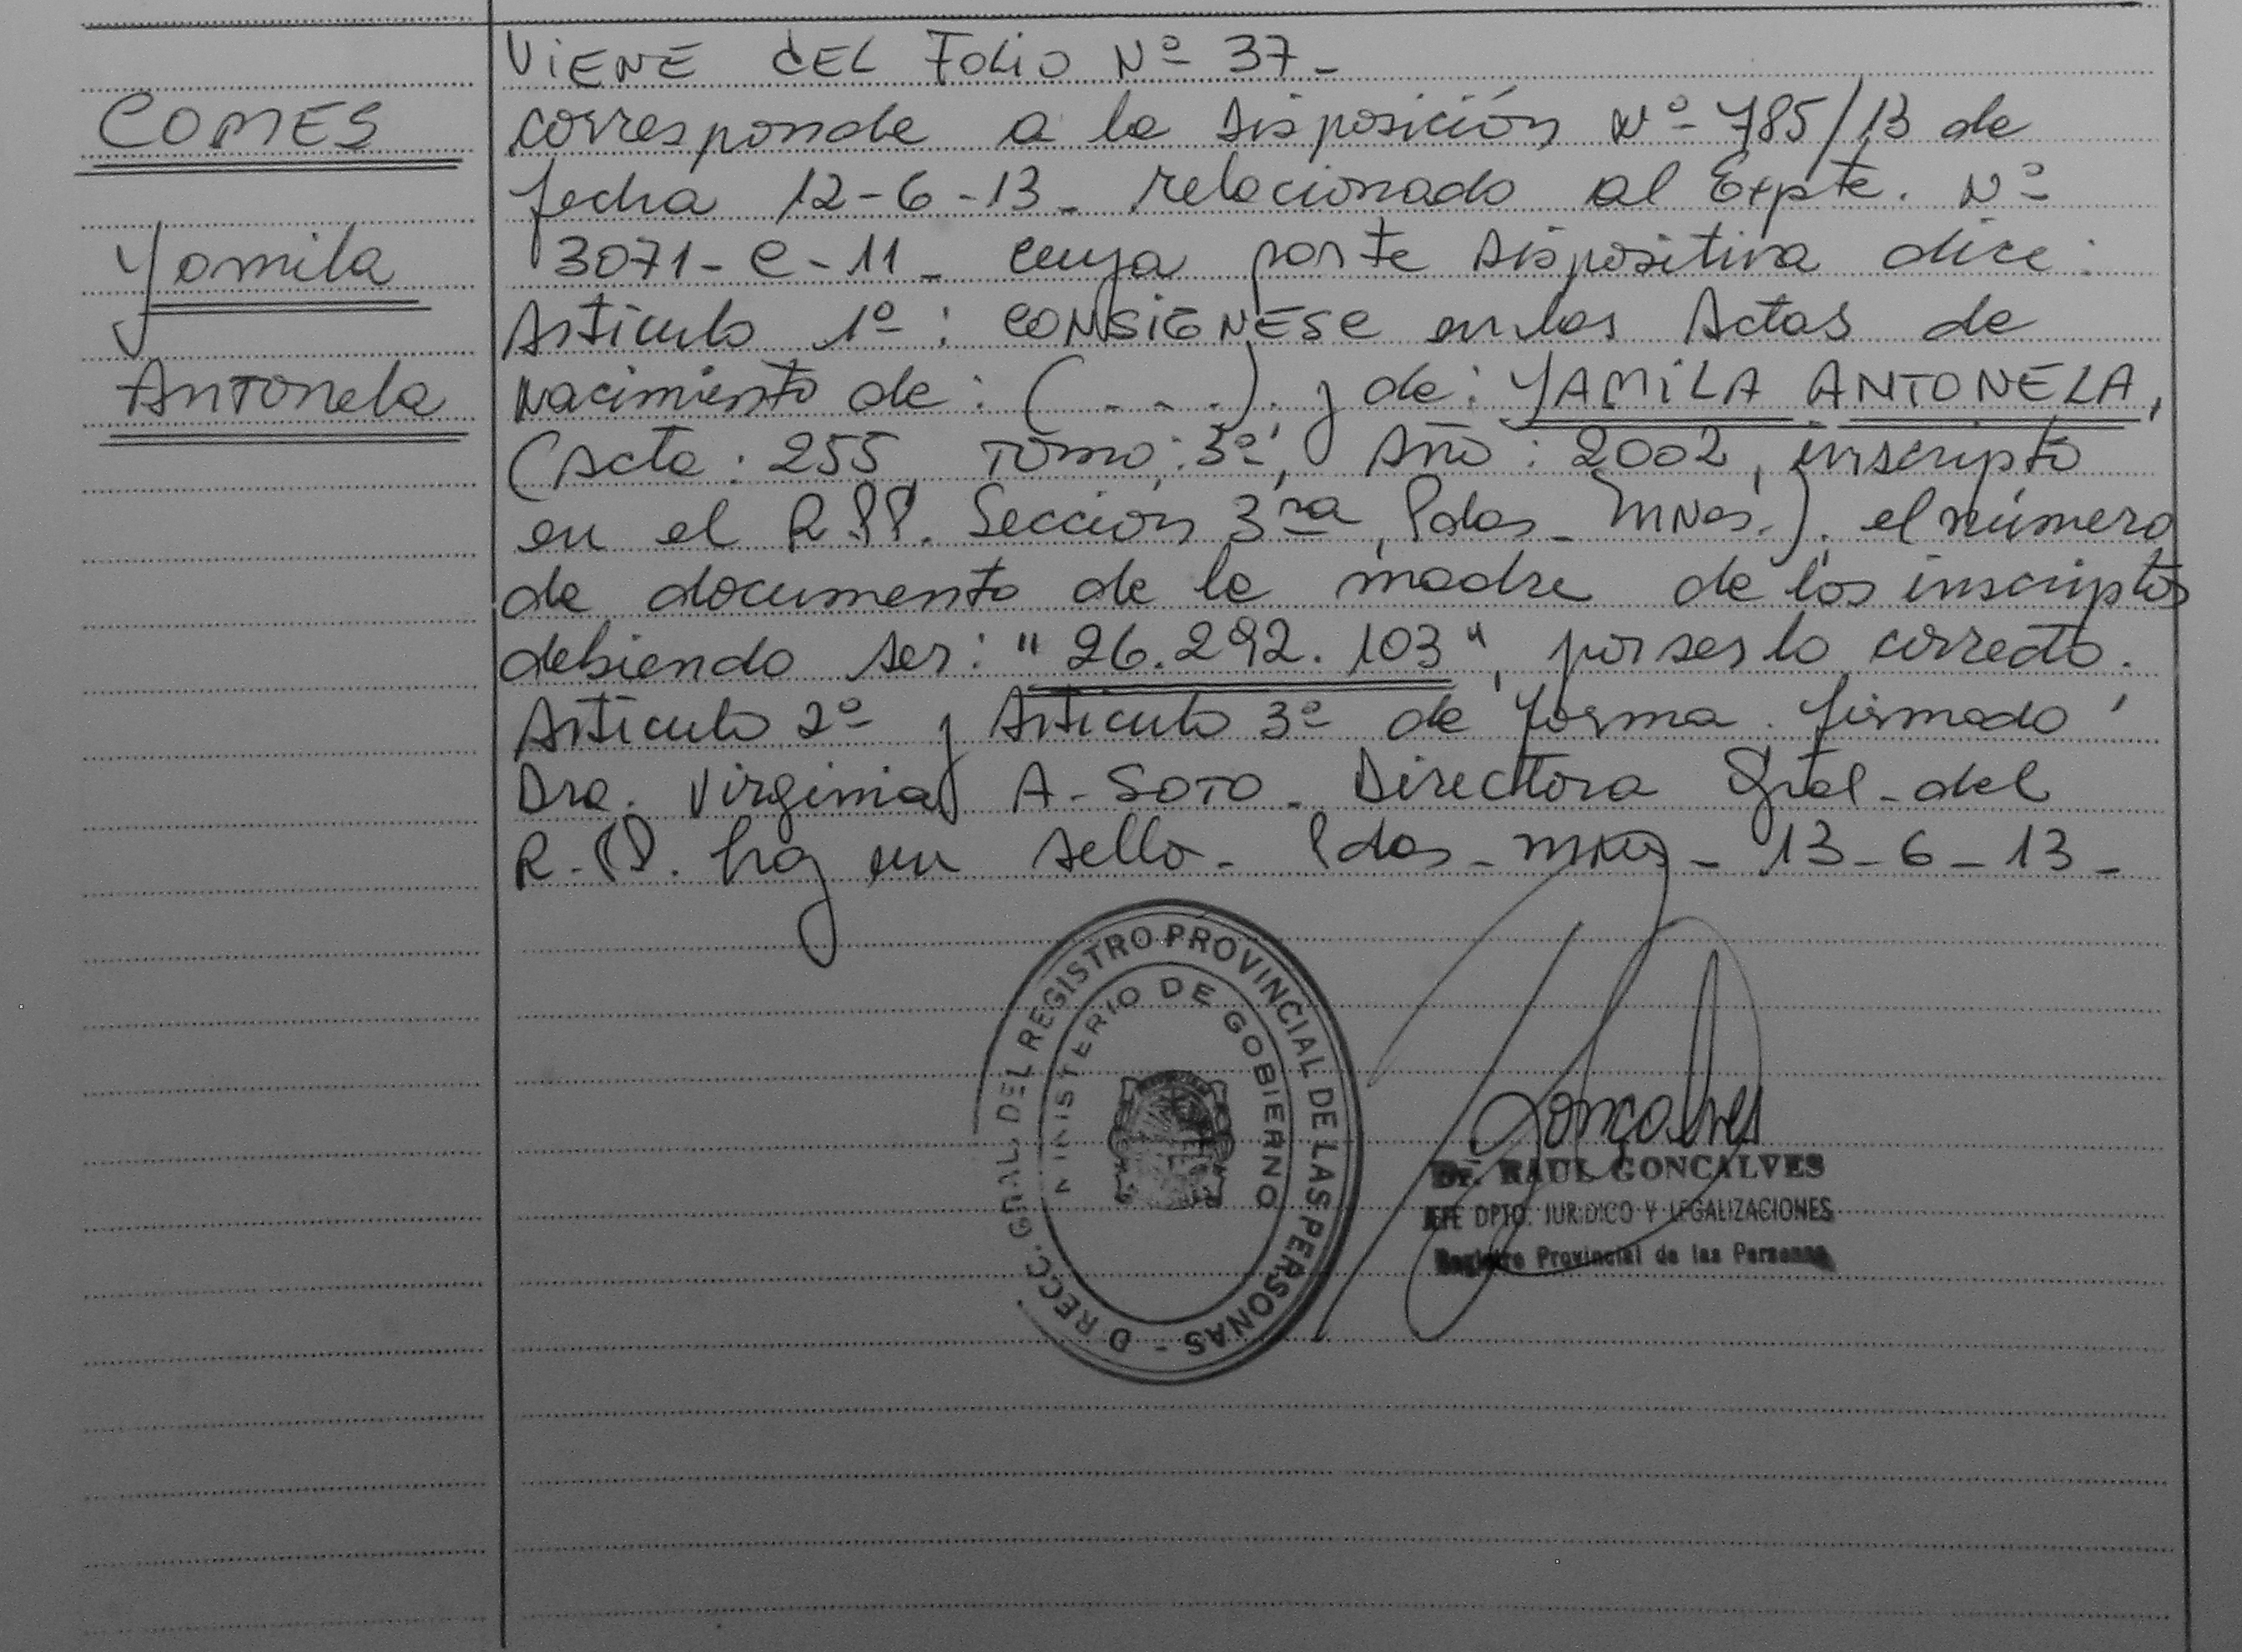 COMES
Yamila
Antonela
ViENE dEL FoLio Nº 37-
corresponde a la Disposición Nº 785/13 de
fecha 12-6-13- relacionado al Expte. Nº
3071-C-11- cuya parte Dispositiva dice:
Artículo 1º: CONSIGNESE en las Actas de
Nacimiento de: (. . . .). y de: YAMiLA ANTONELA,
(Acta: 255, Tomo: 3º, Año: 2002, inscripto
en el R.P.P. Sección 3ra, Pdas- Mnes.). el número
de documento de la madre de los inscriptos
debiendo ser: "26.292.103", por ser lo correcto.
Artículo 2º y Artículo 3º de forma. firmado:
Dra. Virginia A- SOTO- Directora Gral- del
R.P.P. hay un sello- Pdas- mnes- 13-6-13-
DIRECC. GRAL. DEL REGISTRO PROVINCIAL DE LAS PERSONAS -
MINISTERIO DE GOBIERNO
Goncalves
Dr. RAUL GONCALVES
JEFE DPTO. JURIDICO Y LEGALIZACIONES
Registro Provincial de las Personas